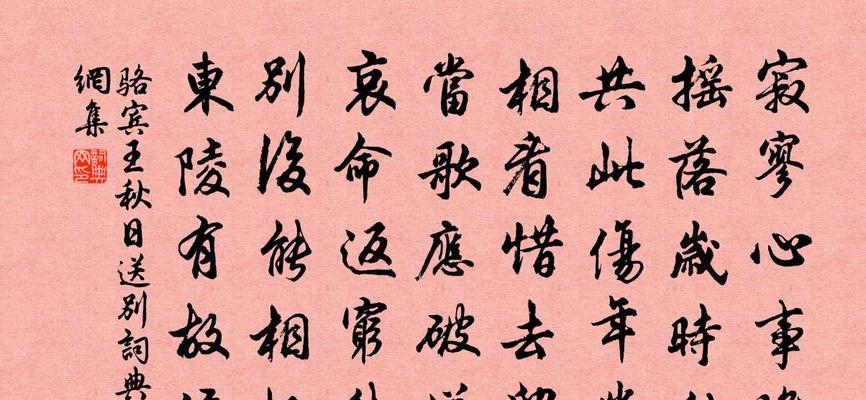 寂寥心事
搖落歲時
共此傷年
相看惜去
當歌應破
哀命返窮
別後能相
東陵有故
駱宾王秋日送別詞典
網集